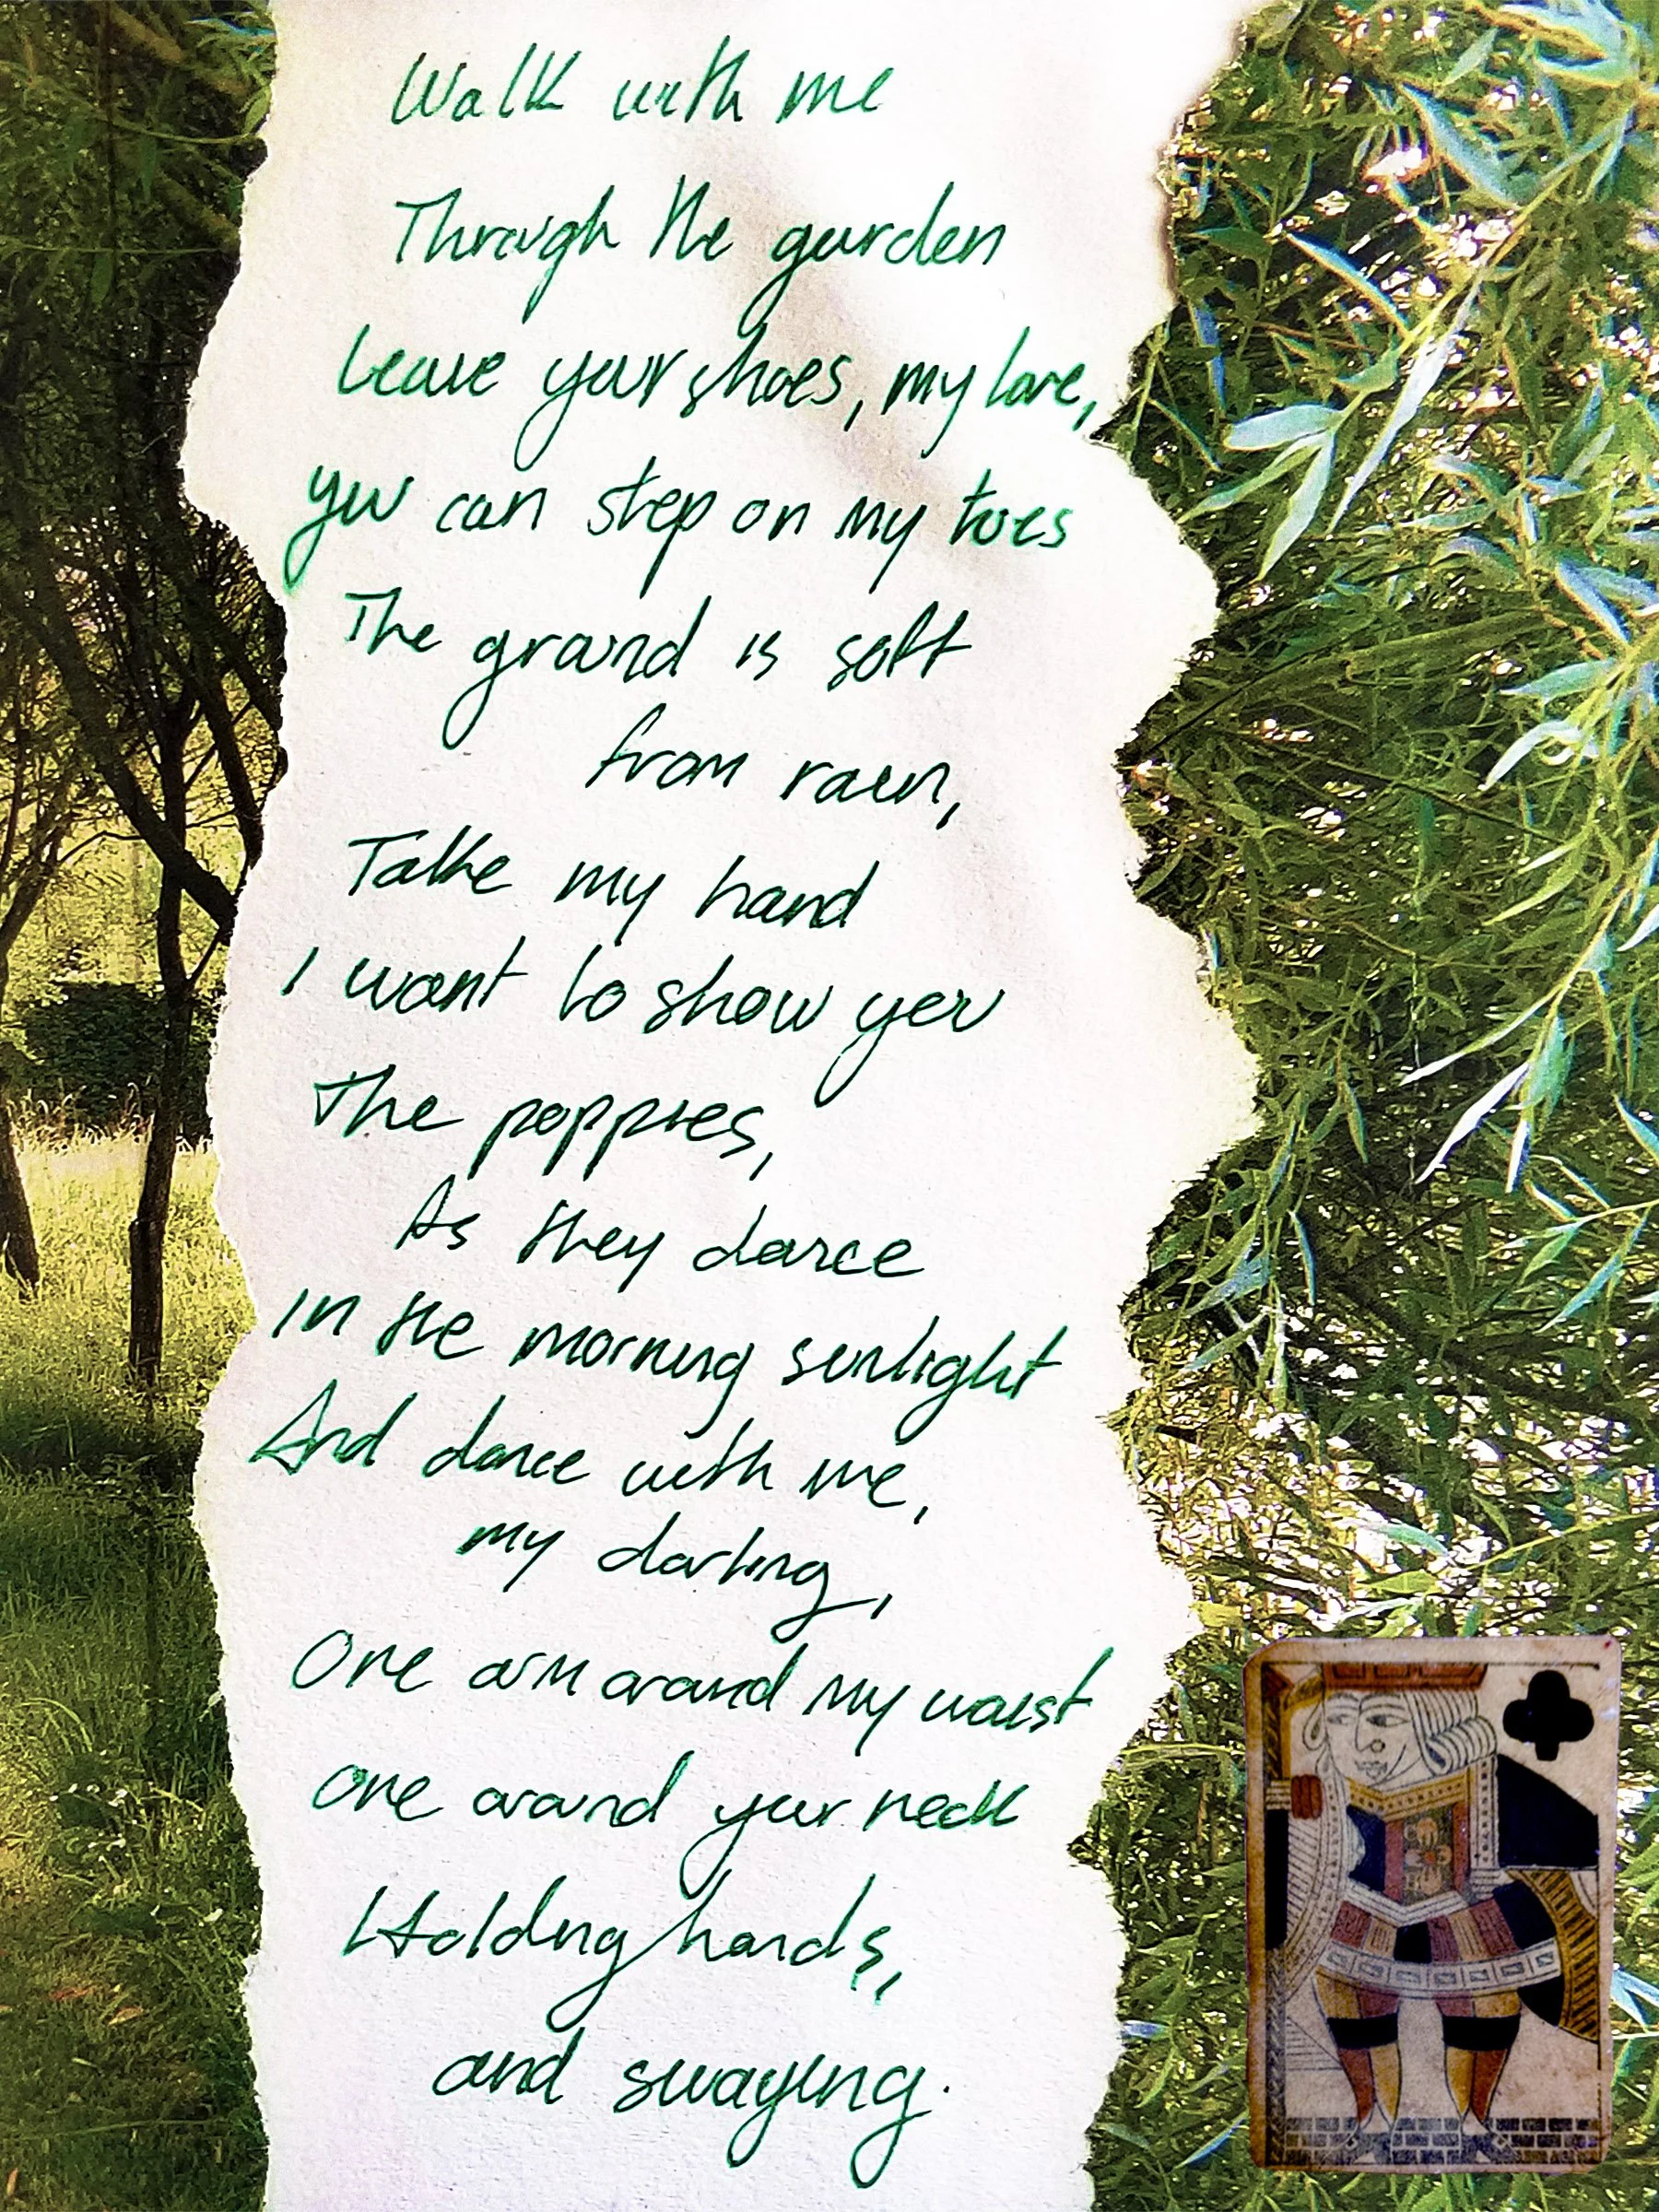 Walk with me
Through the garden
Leave your shoes, my love,
you can step on my toes
The ground is soft
from rain,
Take my hand
I want to show you
The poppies,
As they dance
In the morning sunlight
And dance with me,
my darling,
One arm around my waist
One around your neck
Holding hands,
and swaying.